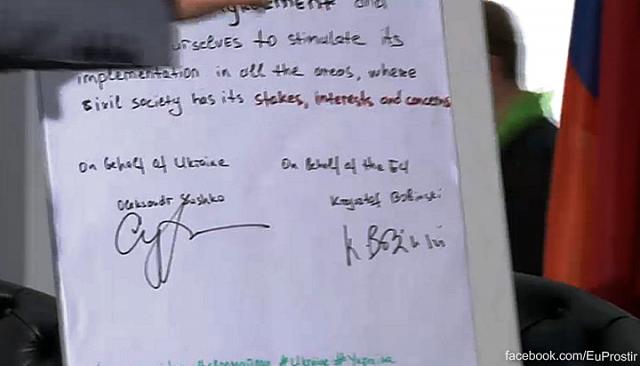 and
urselves to stimulate its
implementation in all the areas, where
sivil society has its stakes, interests and concerns
On behalf of Ukraine
On behalf of the EU
Oleksandr Sushko
Krzysztof Bobinski
#Ukraine #Україна
facebook.com/EuProstir